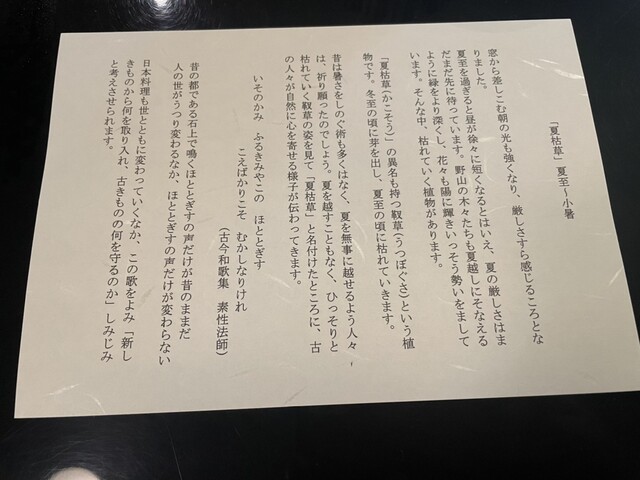 「夏枯草」夏至～小暑
窓から差しこむ朝の光も強くなり、厳しさすら感じるころとな
りました。
夏至を過ぎると昼が徐々に短くなるとはいえ、夏の厳しさはま
だまだ先に待っています。野山の木々たちも夏越しにそなえる
ように緑をより深くし、花々も陽に輝きいっそう勢いをまして
います。そんな中、枯れていく植物があります。
「夏枯草(かこそう)」の異名も持つ靫草(うつぼぐさ)という植
物です。冬至の頃に芽を出し、夏至の頃に枯れていきます。
昔は暑さをしのぐ術も多くはなく、夏を無事に越せるよう人々
は、祈り願ったのでしょう。夏を越すこともなく、ひっそりと
枯れていく靫草の姿を見て「夏枯草」と名付けたところに、古
の人々が自然に心を寄せる様子が伝わってきます。
いそのかみ ふるきみやこの ほととぎす
こえばかりこそ むかしなりけれ
(古今和歌集 素性法師)
昔の都である石上で鳴くほととぎすの声だけが昔のままだ
人の世がうつり変わるなか、ほととぎすの声だけが変わらない
日本料理も世とともに変わっていくなか、この歌をよみ「新し
きものから何を取り入れ 古きものの何を守るのか」しみじみ
と考えさせられます。